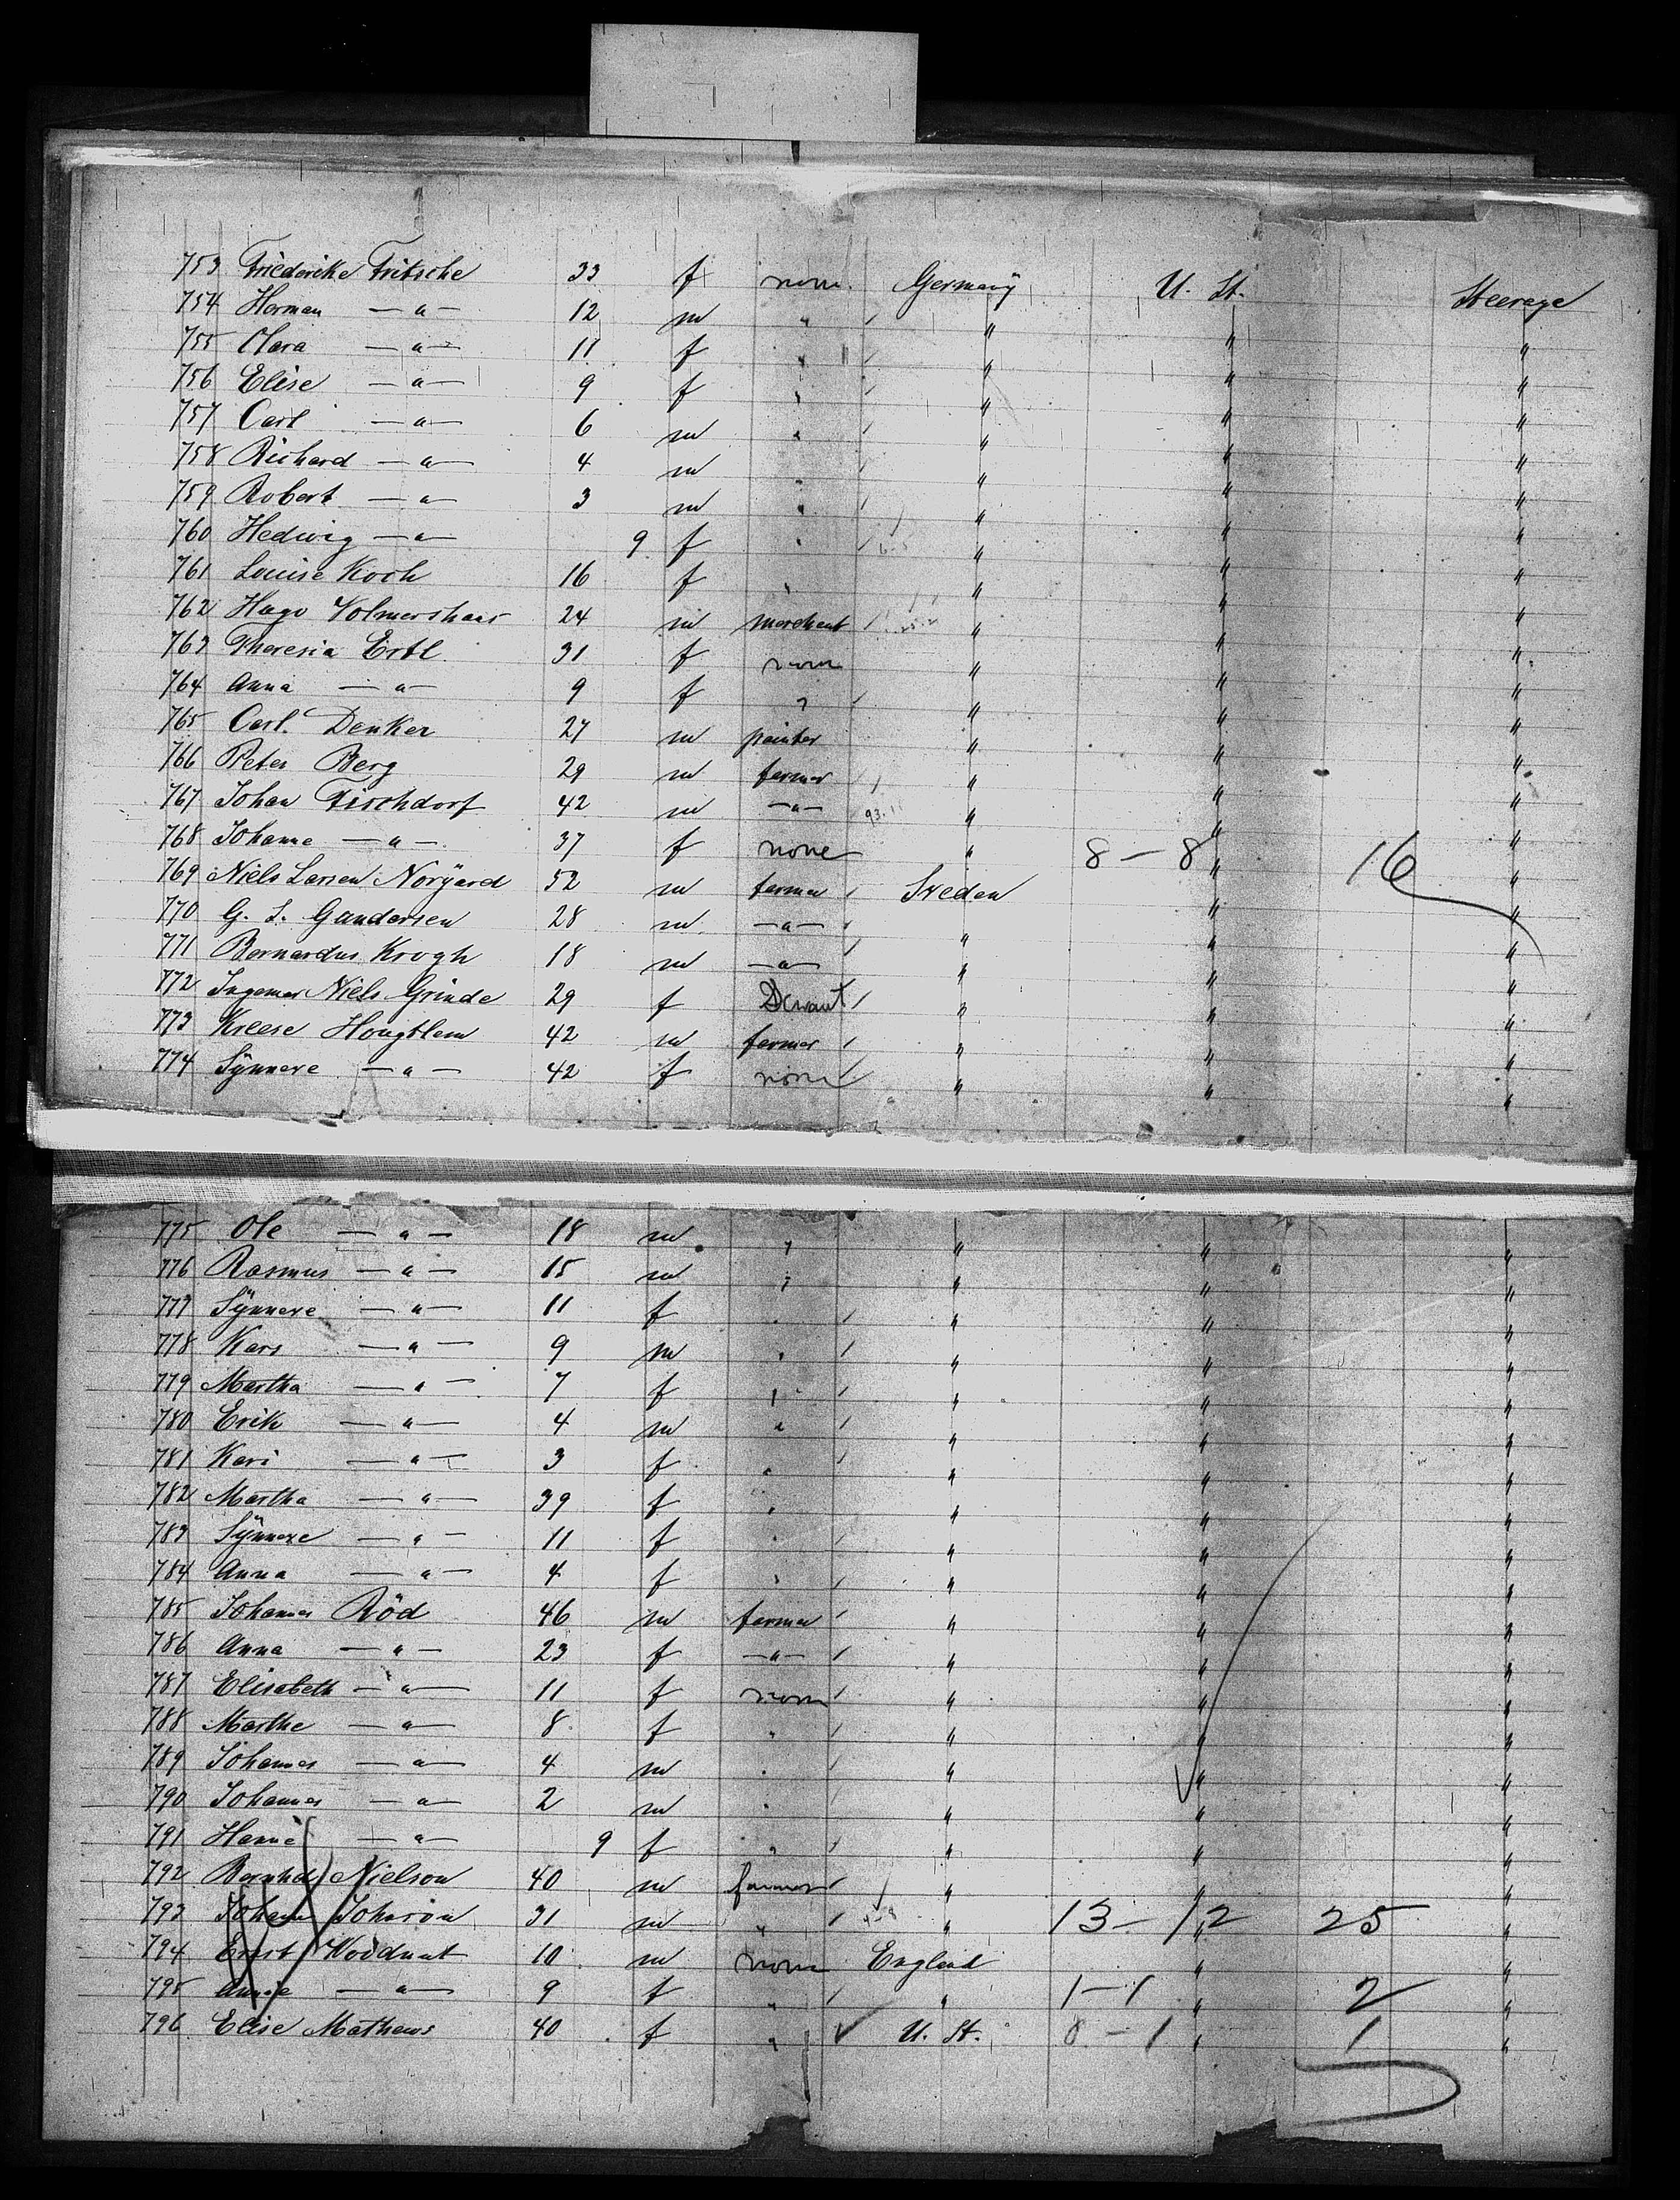 753 Friederike Fritsche 33 f none Germany U. St. Steerage
754 Herman — " — 12 m " " " "
755 Clara — " — 11 f " " " "
756 Elise — " — 9 f " " " "
757 Carl — " — 6 m " " " "
758 Richard — " — 4 m " " " "
759 Robert — " — 3 m " " " "
760 Hedwig — " — 9 f " " " "
761 Louise Koch 16 f " " " "
762 Hugo 24 m merchant " " "
763 Theresia Ertl 31 f none " " "
764 Anna — " — 9 f " " " "
765 Carl Denker 27 m painter " " "
766 Peter Berg 29 m farmer " " "
767 Johan Fischdorf 42 m — " — " " "
768 Johanne — " — 37 f none " 8 — 8 " 16 "
769 Niels Larsen Norgard 52 m farmer Sveden " "
770 G. L. Gundersen 28 m — " — " " "
771 Bernardus Krogh 18 m — " — " " "
772 Niels Grinde 29 f Servant " " "
773 42 m farmer " " "
774 Synneve — " — 42 f none " " "
775 Ole — " — 18 m " " " "
776 Rasmus — " — 15 m " " " "
777 Synneve — " — 11 f " " " "
778 Kars — " — 9 m " " " "
779 Martha — " — 7 f " " " "
780 Erik — " — 4 m " " " "
781 Kari — " — 3 f " " " "
782 Martha — " — 39 f " " " "
783 Synneve — " — 11 f " " " "
784 Anna — " — 4 f " " " "
785 Johannes Röd 46 m farmer " " "
786 Anna — " — 23 f — " — " " "
787 Elisabeth — " — 11 f none " " "
788 Marthe — " — 8 f " " " "
789 Johannes — " — 4 m " " " "
790 Johannes — " — 2 m " " " "
791 Hanne — " — 9 f " " " "
792 Bernhd Nielson 40 m farmer " " "
793 Johann 31 m " " 13 — 12 " 25 "
794 Ernst 10 m none England " "
795 Annie — " — 9 f " " 1 — 1 " 2 "
796 Elise Mathews 40 f " U. St. 0 — 1 " 1 "